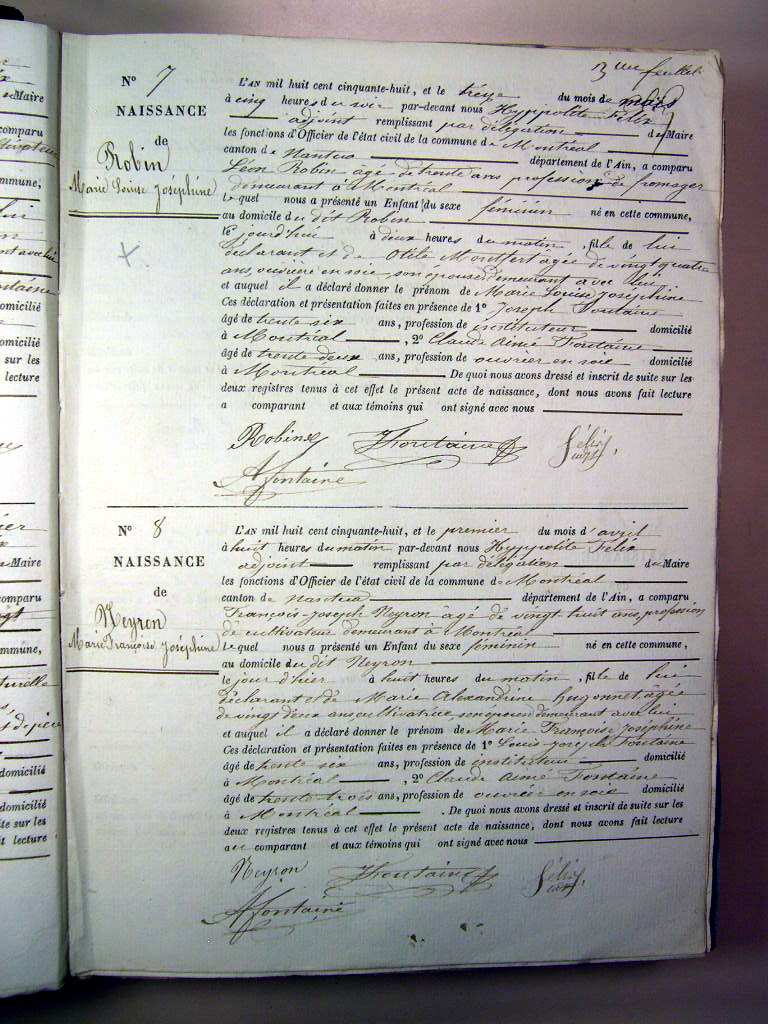 3me feuillet
N° 7
NAISSANCE
de
Robin
Marie Louise Joséphine
L'AN mil huit cent cinquante-huit, et le treize du mois de mars
à cinq heures du soir par-devant nous Hyppolite Felix
adjoint remplissant par délégation de Maire
les fonctions d'Officier de l'état civil de la commune de Montréal
canton de Nantua département de l'Ain, a comparu
Léon Robin agé de trente ans profession de fromager
demeurant à Montréal
lequel nous a présenté un Enfant du sexe féminin né en cette commune,
au domicile du dit Robin
le jourd'hui à deux heures du matin, fille de lui
déclarant et de Otile Montfort agée de vingt quatre
ans, ouvrière en soie son épouse demeurant avec lui
et auquel il a déclaré donner le prénom de Marie Louise Joséphine
Ces déclaration et présentation faites en présence de 1° Joseph Fontaine
âgé de trente six ans, profession de instituteur domicilié
à Montréal, 2° Claude Aimé Fontaine
âgé de trente deux ans, profession de ouvrier en soie domicilié
à Montréal De quoi nous avons dressé et inscrit de suite sur les
deux registres tenus à cet effet le présent acte de naissance, dont nous avons fait lecture
a comparant et aux témoins qui ont signé avec nous
Robin JFontaine Félix
adjt
Afontaine
N° 8
NAISSANCE
de
Neyron
Marie Françoise Joséphine
L'AN mil huit cent cinquante-huit, et le premier du mois d'avril
à huit heures du matin par-devant nous Hyppolite Felix
adjoint remplissant par délégation de Maire
les fonctions d'Officier de l'état civil de la commune de Montréal
canton de Nantua département de l'Ain, a comparu
François-Joseph Neyron agé de vingt huit ans, profession
de cultivateur demeurant à Montréal
Lequel nous a présenté un Enfant du sexe féminin né en cette commune,
au domicile du dit Neyron
le jour d'hier à huit heures du matin, fille de lui
déclarant et de Marie Alexandrine Hugonnet agée
de vingt deux ans cultivatrice son épouse demeurant avec lui
et auquel il a déclaré donner le prénom de Marie Françoise Joséphine
Ces déclaration et présentation faites en présence de 1° Louis Joseph Fontaine
âgé de trente six ans, profession de instituteur domicilié
à Montréal, 2° Claude Aimé Fontaine
âgé de trente trois ans, profession de ouvrier en soie domicilié
à Montréal. De quoi nous avons dressé et inscrit de suite sur les
deux registres tenus à cet effet le présent acte de naissance, dont nous avons fait lecture
au comparant et aux témoins qui ont signé avec nous
Neyron JFontaine Félix
adjt
Afontaine